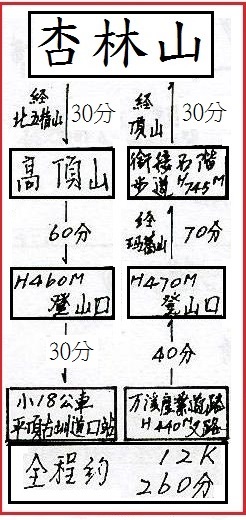 杏林山
経
北五指山
30分
経
頂山
30分
高頂山
銜接石階
步道H745M
60分
経
瑪蓄山
70分
H460M
登山口
H470M
登山口
30分
40分
小18公車
平頂古圳道口站
万溪産業道路
H440M叉路
全程約
12K
260分